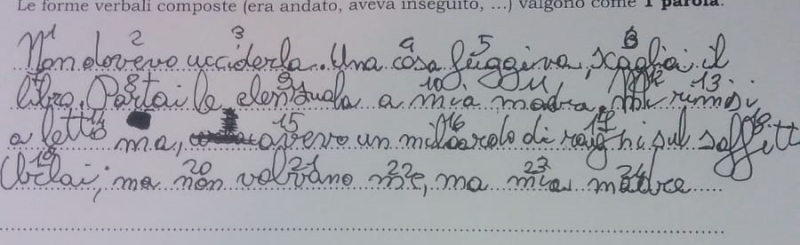 Le forme verbali composte (era andato, aveva inseguito, ...) valgono come 1 parola.
1 2 3 4 5 6
Non dovevo ucciderla. Una cosa fuggiva, scagliai il
8 9 10 11 12 13
libro. Portai le a mia madre. Mi rimisi
14 15 16 17 18
a letto ma, avevo un di raghi sul soffitt
19 20 21 22 23 24
Urlai, ma non volevano me, ma mia madre